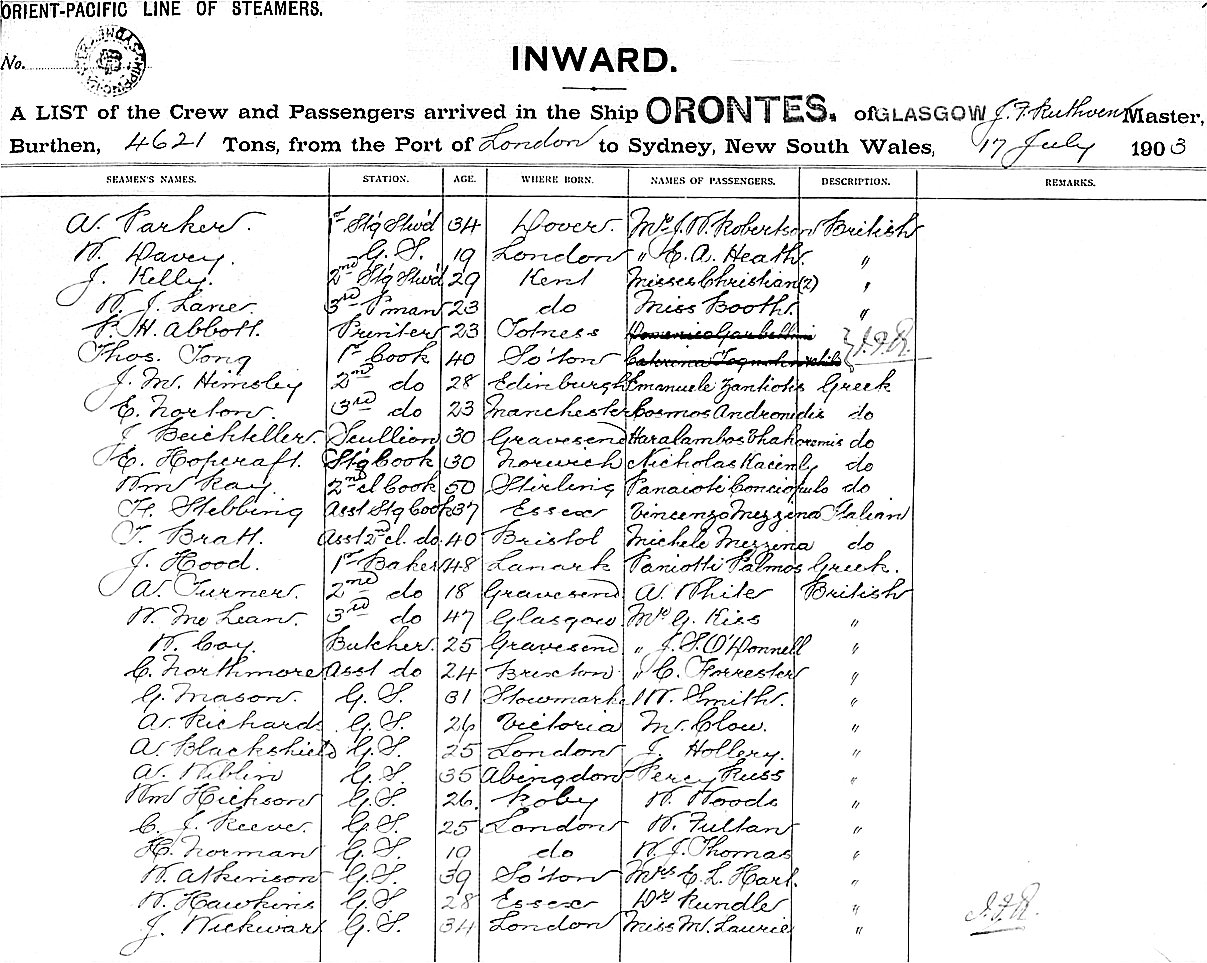 ORIENT-PACIFIC LINE OF STEAMERS.
No.
INWARD.
A LIST of the Crew and Passengers arrived in the Ship ORONTES. of GLASGOW J. F. Ruthven Master,
Burthen, 4621 Tons, from the Port of London to Sydney, New South Wales, 17 July 1903
SEAMEN'S NAMES. STATION. AGE. WHERE BORN. NAMES OF PASSENGERS. DESCRIPTION. REMARKS.
A. Parker. 1st Stg Stwd 34 Dover. Mr J. W. Robertson British
W. Davey. G. S. 19 London " E. A. Heath. "
J. Kelly. 2nd Stg Stwd 29 Kent Misses Christian (2) "
W. J. Lane. 3rd P'man 23 do Miss Booth. "
H. Abbott. Printer 23 Totness Domenico
Thos. Tong 1st Cook 40 So'ton J.F.R.
J. M. Himsley 2nd do 28 Edinburgh Emanuele Zantiotis Greek
E. Norton. 3rd do 23 Manchester Cosmos Andronidis do
J. Scullion 30 Gravesend Haralambos do
E. Hopcraft. Stg Cook 30 Norwich Nicholas do
Wm Kay. 2nd cl Cook 50 Stirling Panaioti do
H. Stebbing Asst Stg Cook 37 Essex Vincenzo Mezzina Italian
T. Bratt. Asst 2nd cl. do 40 Bristol Michele Mezzina do
J. Hood. 1st Baker 48 Lanark Paniotti Palmos Greek.
A. Turner. 2nd do 18 Gravesend A. White British
W. McLean. 3rd do 47 Glasgow Mr G. Kiss "
W. Coy. Butcher. 25 Gravesend " J. S. O'Donnell "
C. Northmore Asst do 24 Brixton " C. Forrester "
G. Mason. G. S. 31 Stowmark W. Smith. "
A. Richards G. S. 26 Victoria M. Clow. "
A. Blackshield G. S. 25 London J. Hollery. "
A. Niblin G. S. 35 Abingdon Percy Russ "
Wm Hickson G. S. 26. Roby W. Woods "
C. J. Reeve. G. S. 25 London W. Fultan "
H. Norman G. S. 19 do W. J. Thomas "
W. Atkinson G. S. 39 So'ton Mrs E. L. Hart. "
W. Hawkins G. S. 28 Essex Dr Rundle "
J. Wickwar G. S. 34 London Miss M. Laurie "
J.F.R.